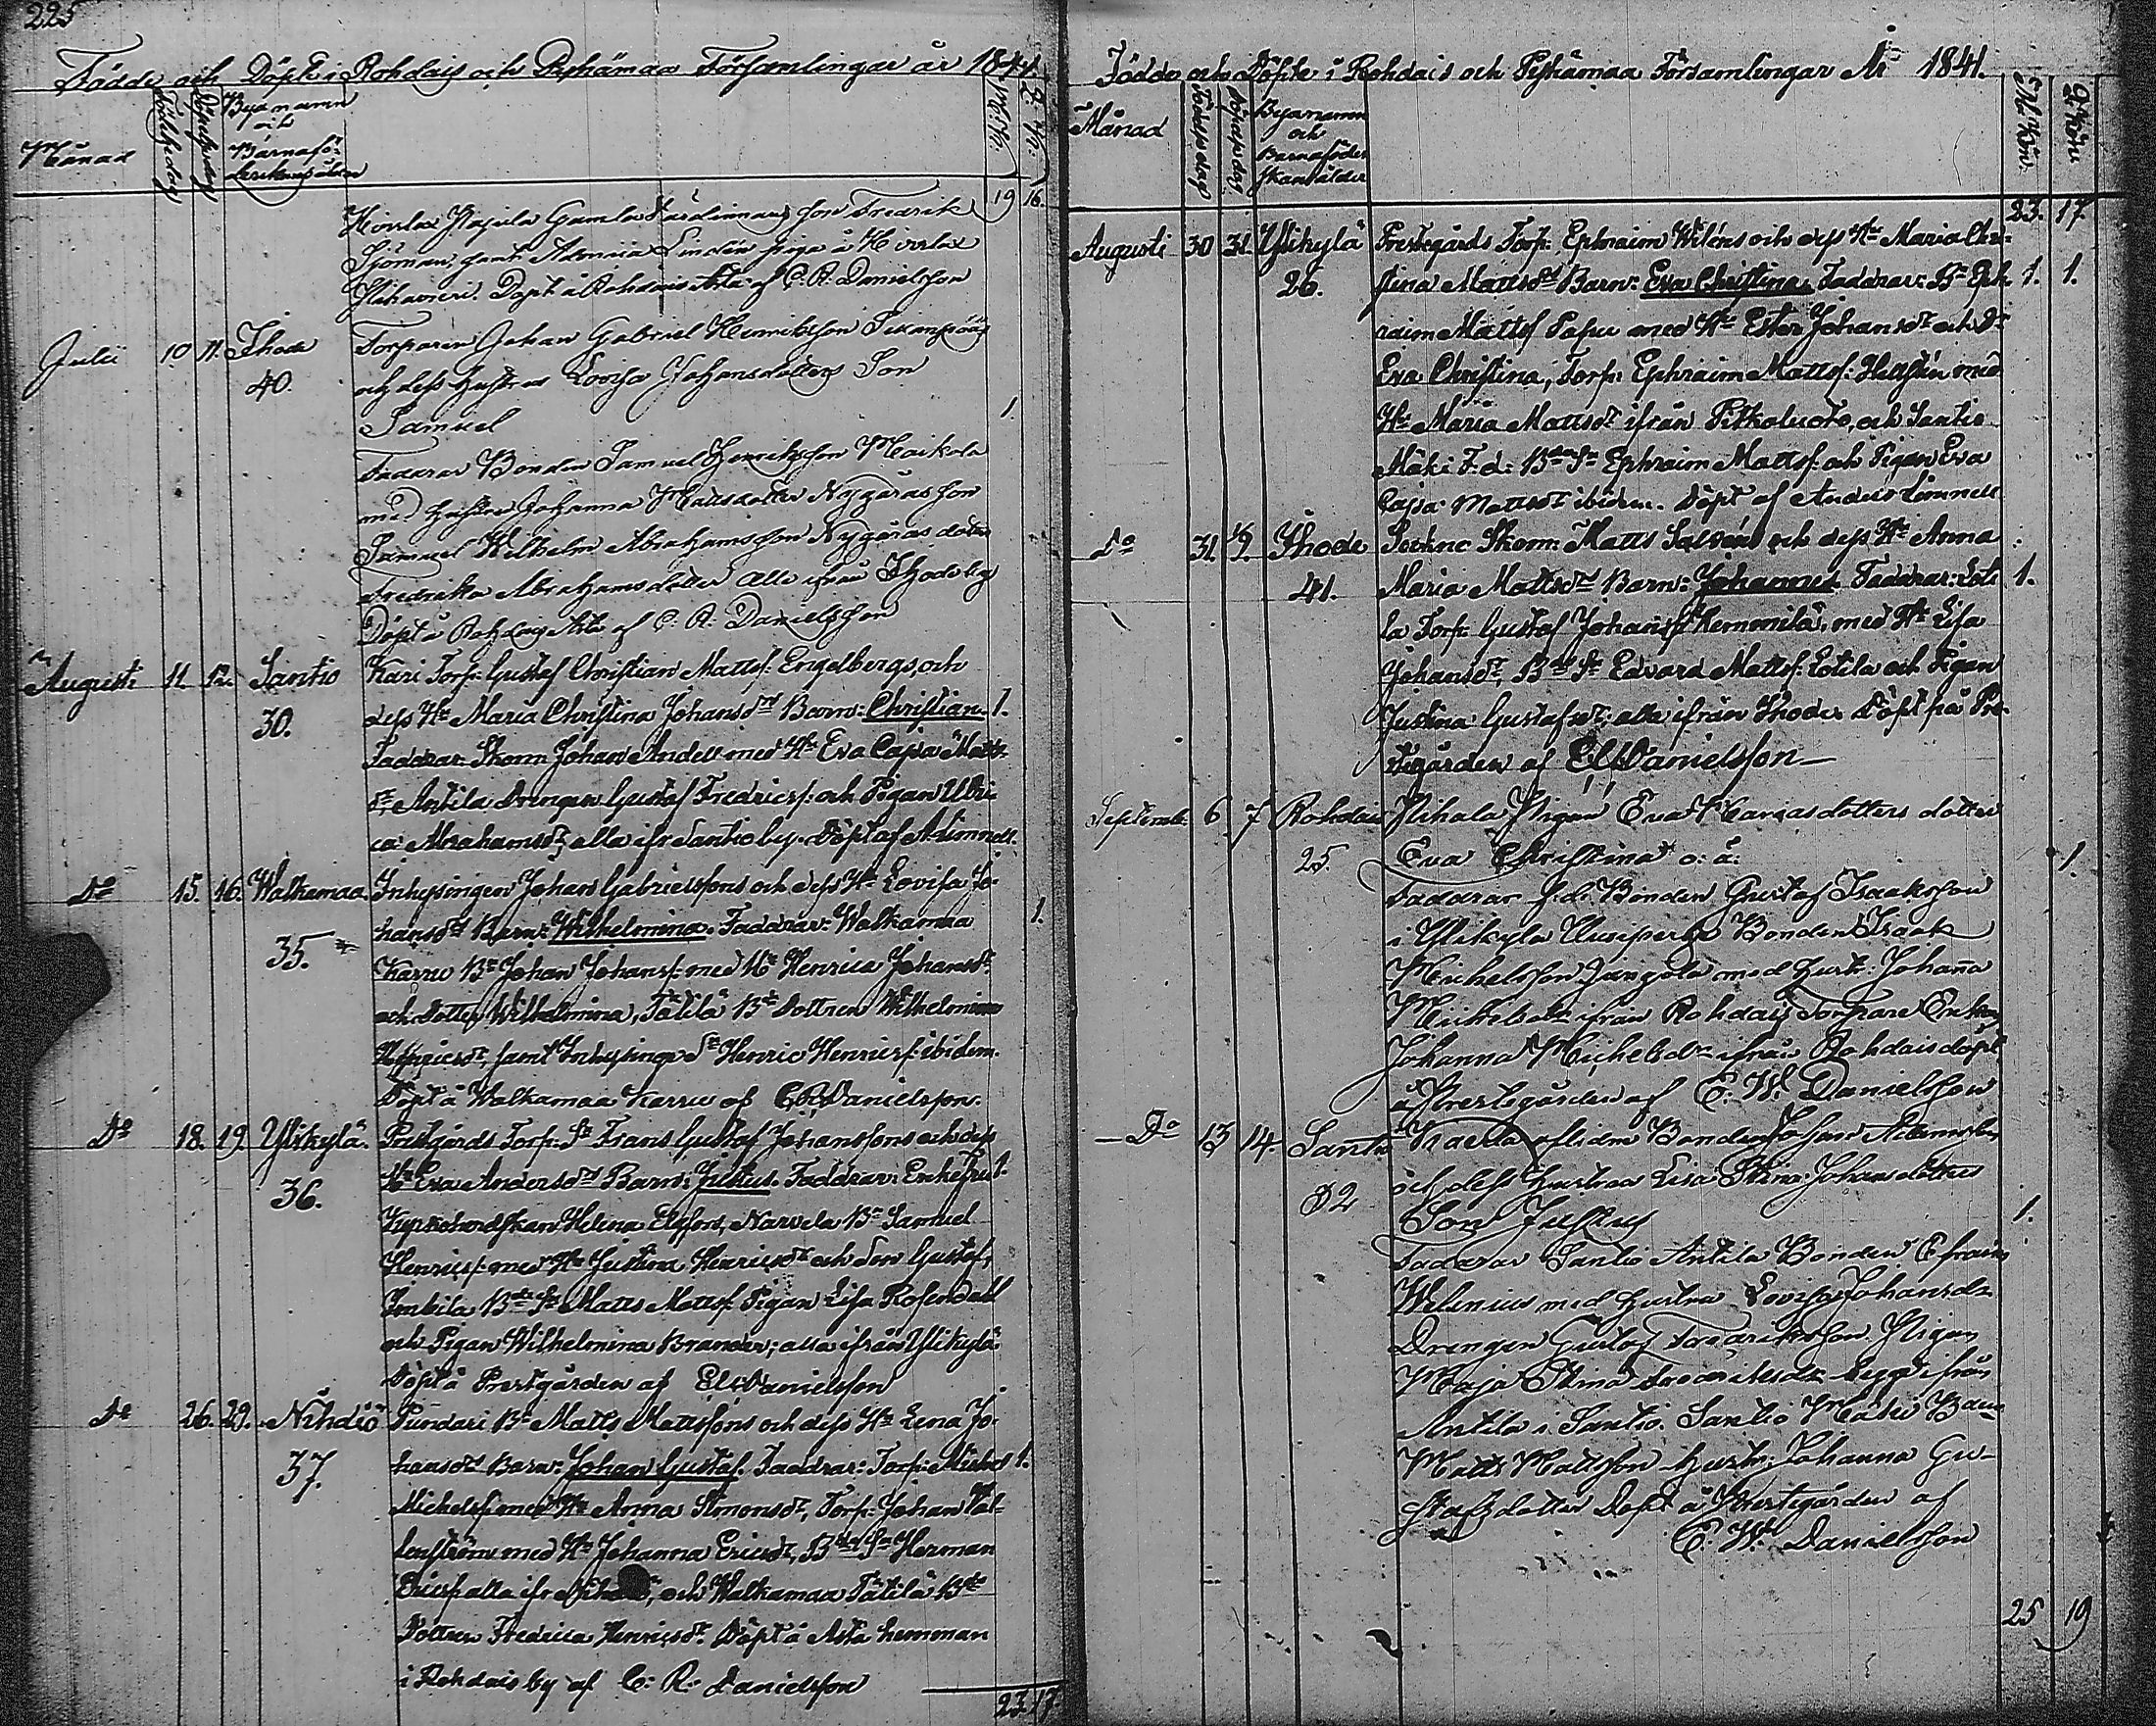 225
Födde och Döpte i Rohdais och Pyhämaa Församlingar år 1841.
Månad
Födelsedag
Döpelsedag
Byanamn
och
Barnaföderskans ålder
19 16.
Gamla Fredrik
Sjöman, samt Lindén piga
Döpt å Rohdais af C. R. Danielsson
Julii 10 11. Ihode Torparen Johan Gabriel Henriksson
40. och dess hustrus Lovisa Johansdotters Son
Samuel 1.
Faddrar Bonden Samuel Henriksson
med hustru Johanna Mattsdotter Nygåras son
Samuel Wilhelm Abrahamsson Nygåras dotter
Fredrika Abrahamsdotter alle ifrån Ihode by
Döpt å Rohdais af C. R. Danielsson
Augusti 11. 12. Santio Kari Torp: Gustaf Christian Mattss: Engelbergs, och
30. dess Hu Maria Christina Johansdrs Barn: Christian. 1.
Faddrar Skom: Johan Andell med Hu Eva Cajsa Matts-
dr, Antila Drengen Gustaf Fredricss: och Pigan Ulri-
ca Abrahamsdr, alla ifr Santio by. Döpt af A. Limnell.
Do 15. 16. Walkamaa Inhysingen Johan Gabrielssons och dess Hu Lovisa Jo-
35. hansdrs Barn: Wilhelmina. Faddrar: Walkamaa 1.
Karru Bn Johan Johanss: med Hu Henrica Johansdr
och dotter Wilhelmina, Tätilä Bds dottren Wilhelmina
Henricsdr, samt Inhysinge Sn Henric Henricss: ibidem.
Döpt å Walkamaa Karru af C R Danielsson.
Do 18. 19. Ylikylä. Prestgårds Torp: Sn Frans Gustaf Johanssons och dess
36. Hu Eva Andersdrs Barn: Justus. Faddrar: Enkefru 1.
Helena Elgfors, Narvela Bn Samuel
Henricss: med Hu Justina Henricsdr och Son Gustaf,
Matts Mattss: Pigan Lisa Rosendall
och Pigan Wilhelmina Brander; alla ifrån Ylikylä.
Döpt å Prestgården af E W Danielsson
Do 26. 29. Nihdiö Pundari Bn Matts Mattssons och dess Hu Lena Jo-
37. hansdrs Barn: Johan Gustaf. Faddrar: Torp: Michel 1.
Michelss: med Hu Anna Simonsdr, Torp: Johan
med Hu Johanna Ericsdr, Herman
Ericss: alla ifr och Walkamaa Tätilä Bds
Dottren Fredrica Henricsdr. Döpt å Asta hemman
i Rohdais by af C. R. Danielsson
23. 17.
Födde och Döpte i Rohdais och Pyhämaa Församlingar År 1841.
Månad
Födelsedag
Döpelsedag
Byanamn
och
Barnaföderskans ålder
M: Kön
Q: Kön
23. 17.
Augusti 30 31. Ylikylä Prestegårds Torp: Ephraim Wiléns och dess Hu Maria Chri-
26. stina Mattsdrs Barn: Eva Christina. Faddrar: Bn Eph- 1. 1.
raim Mattss: med Hu Ester Johansdr och Dr
Eva Christina, Torp: Ephraim Mattss: Hellstén med
Hu Maria Mattsdr ifrån Pitkaluoto, och Santio
Mäki F. d: Ephraim Mattss: och Pigan Eva
Cajsa Mattsdr ibidem. Döpt af Anders Limnell
Do 31. 1/9. Ihode Sockne Skom: Matts Salvén och dess Hu Anna
41. Maria Mattsdrs Barn: Johannes. Faddrar: Loti- 1.
la Torp: Gustaf Johanss: Kemonilä, med Hu Lisa
Johansdr, Edvard Mattss: Lotila och Pigan
Justina Gustafsdr; alla ifrån Ihode. Döpt på Pre-
stgården af E W Danielsson
Septemb. 6 7 Rohdais Pigan Eva dotters dotter
25. Eva Christina o. ä. 1.
Faddrar f. d. Bonden Gustaf Isaaksson
i Ylikylä Uusiperta Bonden Isaak
Michelsson Jungola med Hustr: Johanna
Michelsdr ifrån Rohdais Torpare Enkan
Johanna Michelsdr ifrån Rohdais döpt
å Prestegården af E. W. Danielsson
Do 13 14. Santio aflidne Bonden Johan
32 och dess Hustrus Lisa Stina Johansdotters
Son Justus 1.
Faddrar Santio Antila Bonden Efraim
Wilenius med hustru Lovisa Johansdr
Drengen Gustaf Fredriksson Pigan
Maja Stina Fredriksdr begge ifrån
Antila i Santio. Santio Mäki Bonden
Matts Mattsson Hustr: Johanna Gu-
stafsdotter Döpt å Prestegården af
E. W. Danielsson
25 19